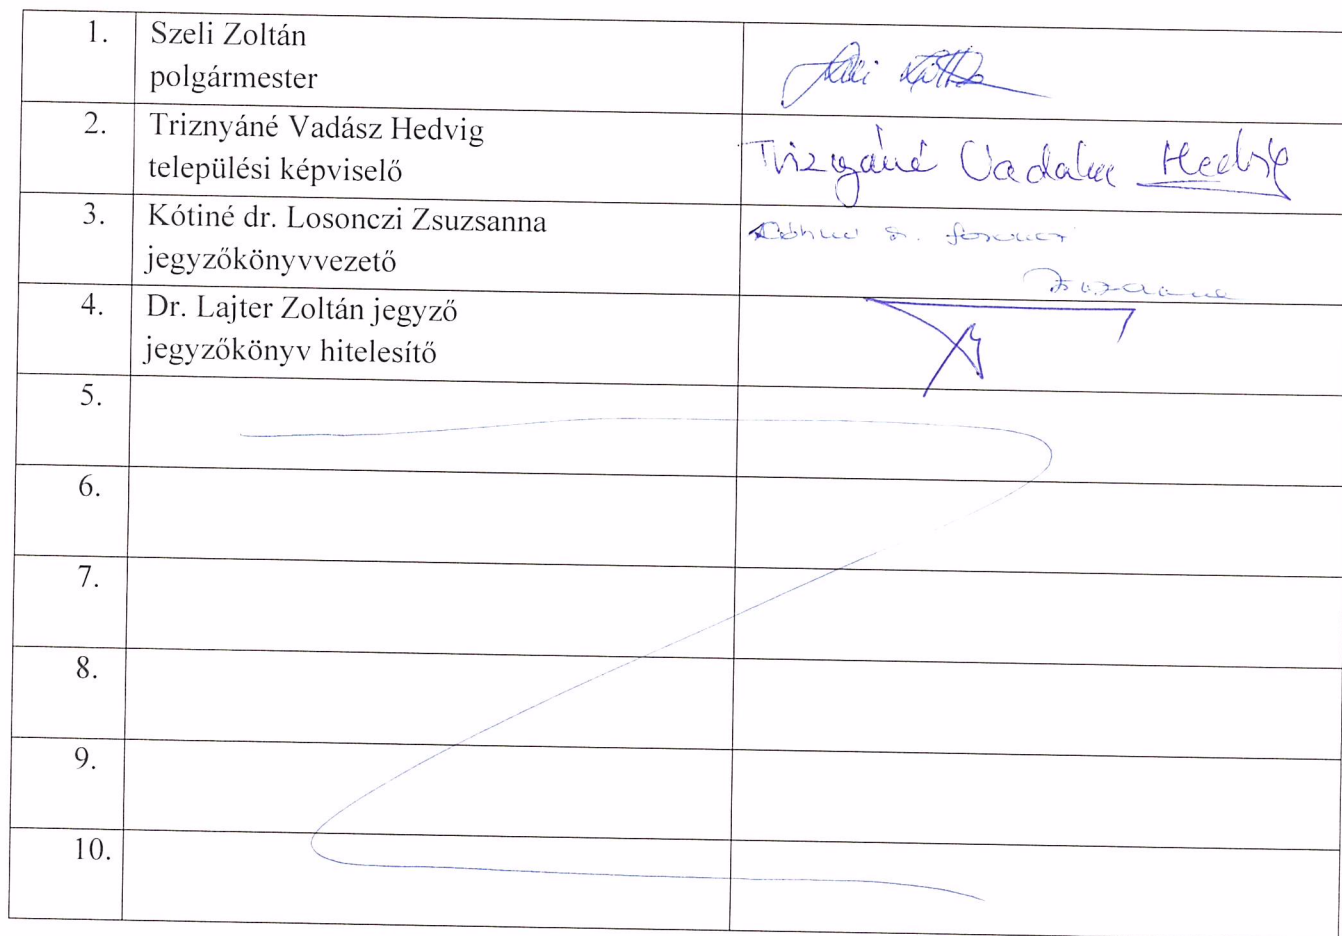 1. Szeli Zoltán
polgármester
2. Triznyáné Vadász Hedvig
települési képviselő
Hedvig
3. Kótiné dr. Losonczi Zsuzsanna
jegyzőkönyvvezető
4. Dr. Lajter Zoltán jegyző
jegyzőkönyv hitelesítő
5.
6.
7.
8.
9.
10.